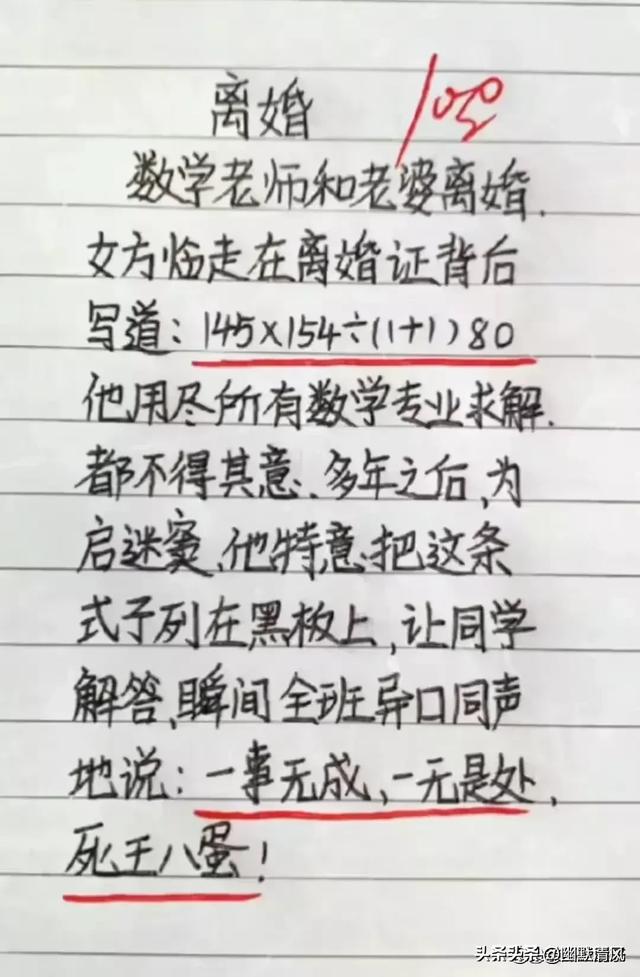 离婚 100
数学老师和老婆离婚.
女方临走在离婚证背后
写道:145×154÷(1+1)80
他用尽所有数学专业求解.
都不得其意.多年之后,为
启迷窦,他特意把这条
式子列在黑板上,让同学
解答,瞬间全班异口同声
地说:一事无成,一无是处,
死王八蛋!
头条头条@幽默清风